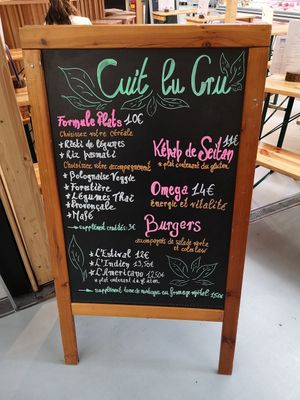 Cuit lu Cru
Formule Plats 10€
Choisissez votre Céréale
★ Rösti de légumes
★ Riz basmati
Choisissez votre accompagnement
★ Bolognaise Veggie
★ Forestière
★ Légumes Thaï
★ Provençale
★ Mafé
supplément crudités: 3€
Kébab de Seitan 11€
* plat contenant du gluten
Omega 14€
énergie et vitalité
Burgers
accompagnés de salade verte
et coleslaw
★ L'Estival 12€
★ L'Indien 13,50€
★ L'Americano 12,50€
* plat contenant du gluten
supplément tome de ou fromage végétal 1,50€